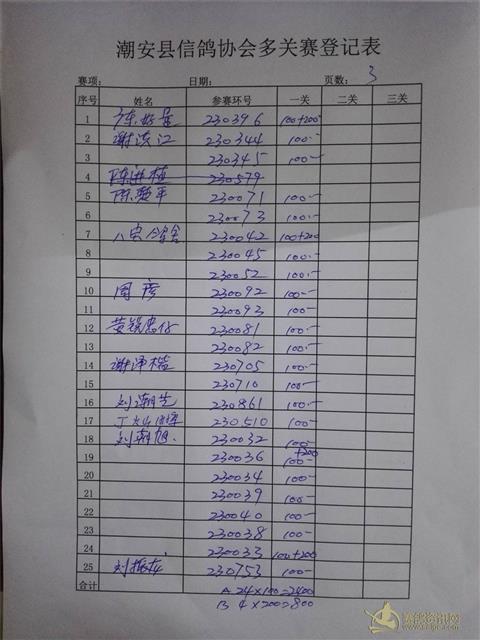 潮安县信鸽协会多关赛登记表
赛项: 日期: 页数: 3
序号 姓名 参赛环号 一关 二关 三关
1 230396 100+200
2 谢洪江 230344 100-
3 230345 100-
4 230579
5 230071 100-
6 230073 100-
7 230042 100+200
8 230045 100-
9 230052 100-
10 周彦 230092 100-
11 230093 100-
12 230081 100-
13 230082 100-
14 230705 100-
15 230710 100-
16 刘潮先 230861 100-
17 230510 100-
18 刘潮旭 230032 100-
19 230036 100- +200
20 230034 100-
21 230039 100-
22 230040 100-
23 230038 100-
24 230033 100+200
25 刘振龙 230753 100-
合计 A 24×100=2400
B 4×200=800